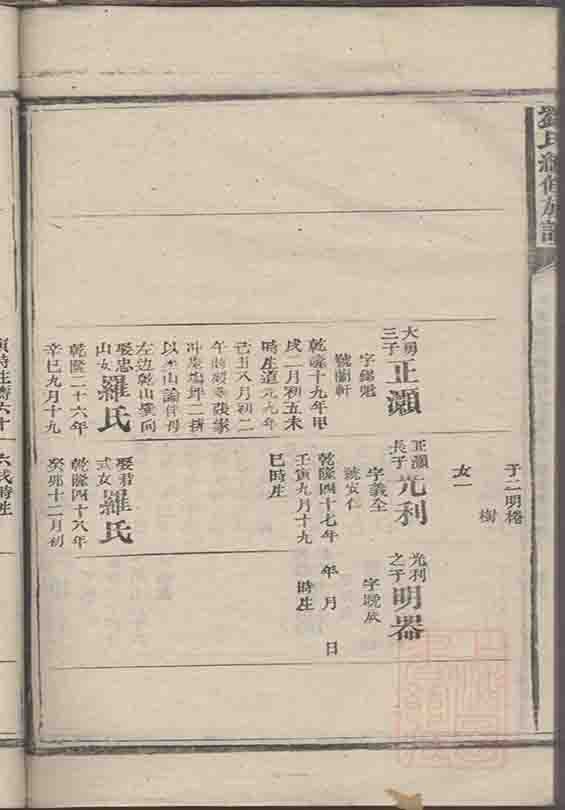 劉氏續修族譜
子二明椿
樹
女一
大勇
三子
正灝
字錫魁
號蘭軒
乾隆十九年甲
戌二月初五未
時生道光九年
己丑八月初二
午時歿葬張家
冲炭塢坪二撈
左边乾山巽向
娶忠
山女
羅氏
乾隆二十六年
辛巳九月十九
正灝
長子
光利
字義全
號安仁
乾隆四十七年
壬寅九月十九
巳時生
娶君
式女
羅氏
乾隆四十八年
癸卯十二月初
光利
之子
明器
字晩成
年 月 日
時生